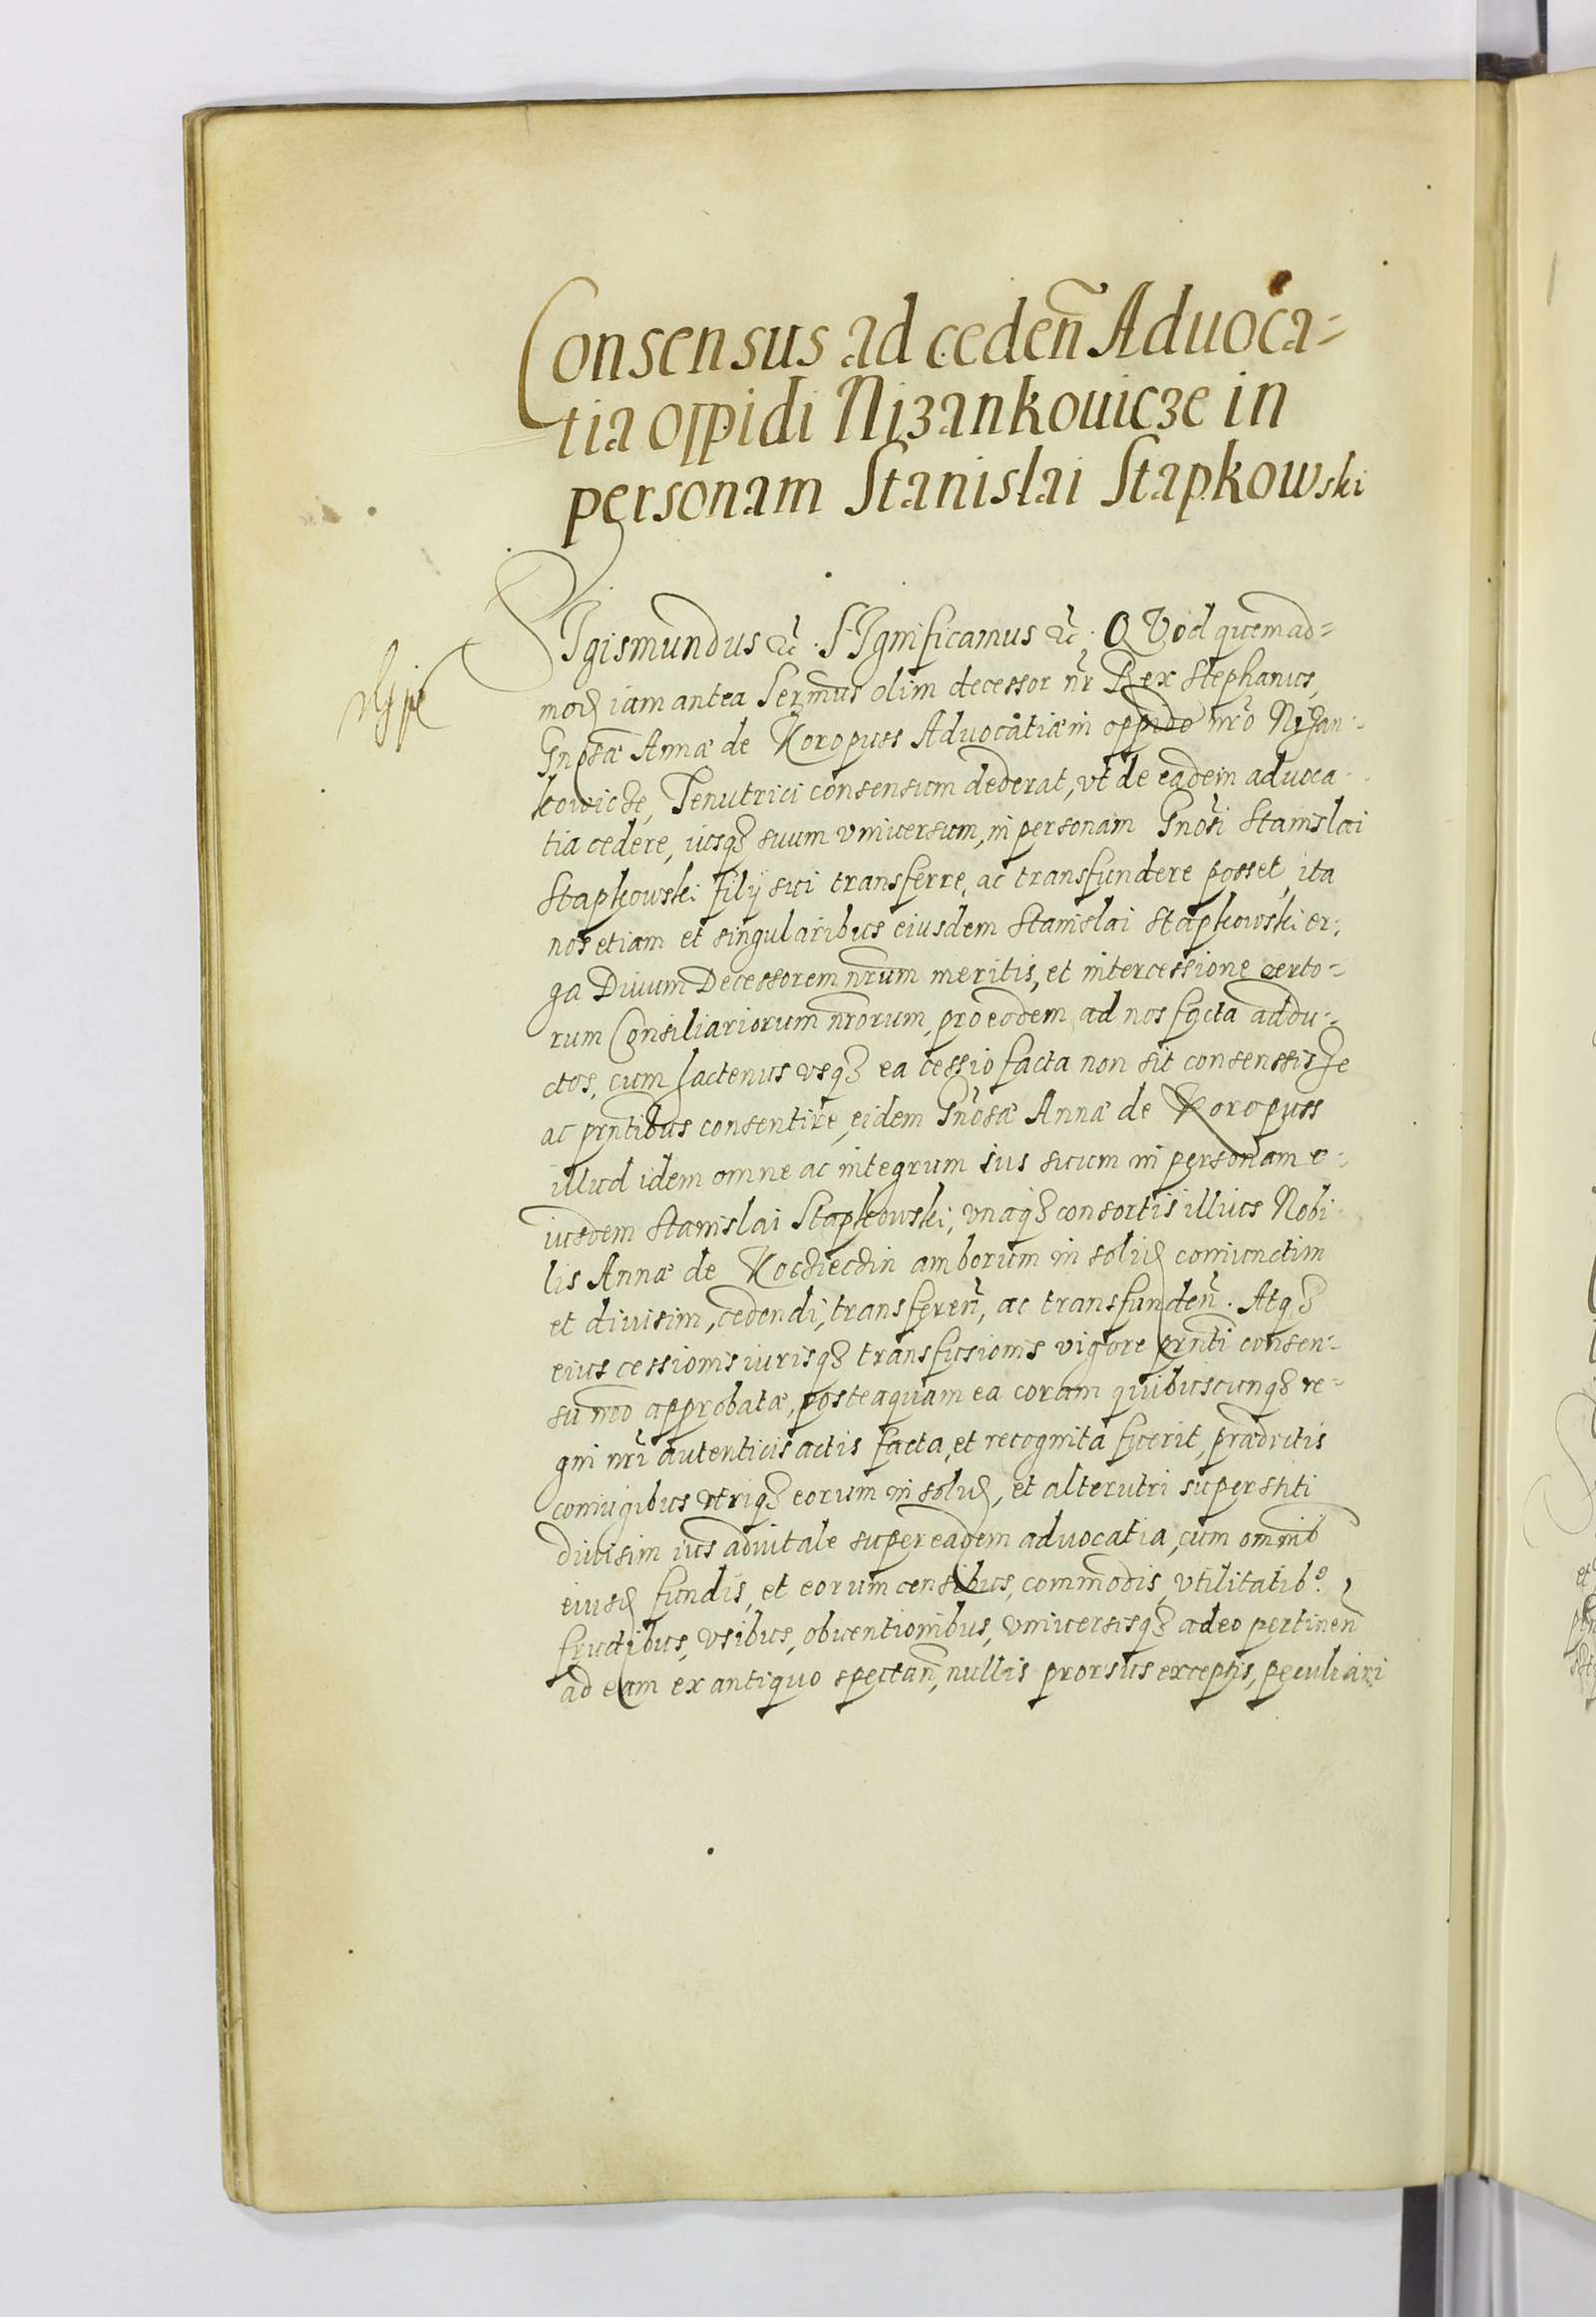 Consensus ad ceden̄ Aduoca=
tia oppidi Nizankouicze in
personam Stanislai Stapkowski
SIgismundus &c. SIgnificamus &c. QVod quemad=
mod iam antea Sermus olim decessor nr Rex Stephanus,
Gnosæ Annæ de Koropuss Aduocatiæ in oppido nro Nizan-
kowicze, Tenutrici consensum dederat, vt de eadem aduoca-
tia cedere, iusq3 suum vniuersum, in personam Gnosi Stanislai
Stapkowski filij sui transferre, ac transfundere posset, ita
nos etiam et singularibus eiusdem Stanislai Stapkowski er-
ga Diuum Decessorem nrum meritis, et intercessione certo-
rum Consiliariorum nrorum, pro eodem ad nos facta addu-
ctos, cum hactenus vsq3 ea cessio facta non sit consensisse
ac prntibus consentire, eidem Gnosæ Annæ de Koropuss
illud idem omne ac integrum ius suum in personam e-
iusdem Stanislai Stapkowski, vnaq3 consortis illius Nobi-
lis Annæ de Koczieczin amborum in solid coniunctim
et diuisim, cedendi, transferen̄, ac transfunden̄. Atq3
eius cessionis iurisq3 transfusionis vigore prnti consen-
su nro approbatæ, posteaquam ea coram quibuscunq3 re-
gni nri autenticis actis facta, et recognita fuerit, prædictis
coniugibus vtriq3 eorum in solid, et alterutri superstiti
diuisim ius aduitale super eadem aduocatia, cum omnib
eiusd fundis, et eorum censibus, commodis, vtilitatib9
fructibus, vsibus, obuentionibus, vniuersisq3 adeo pertinen̄
ad eam ex antiquo spectan̄, nullis prorsus exceptis, peculiari